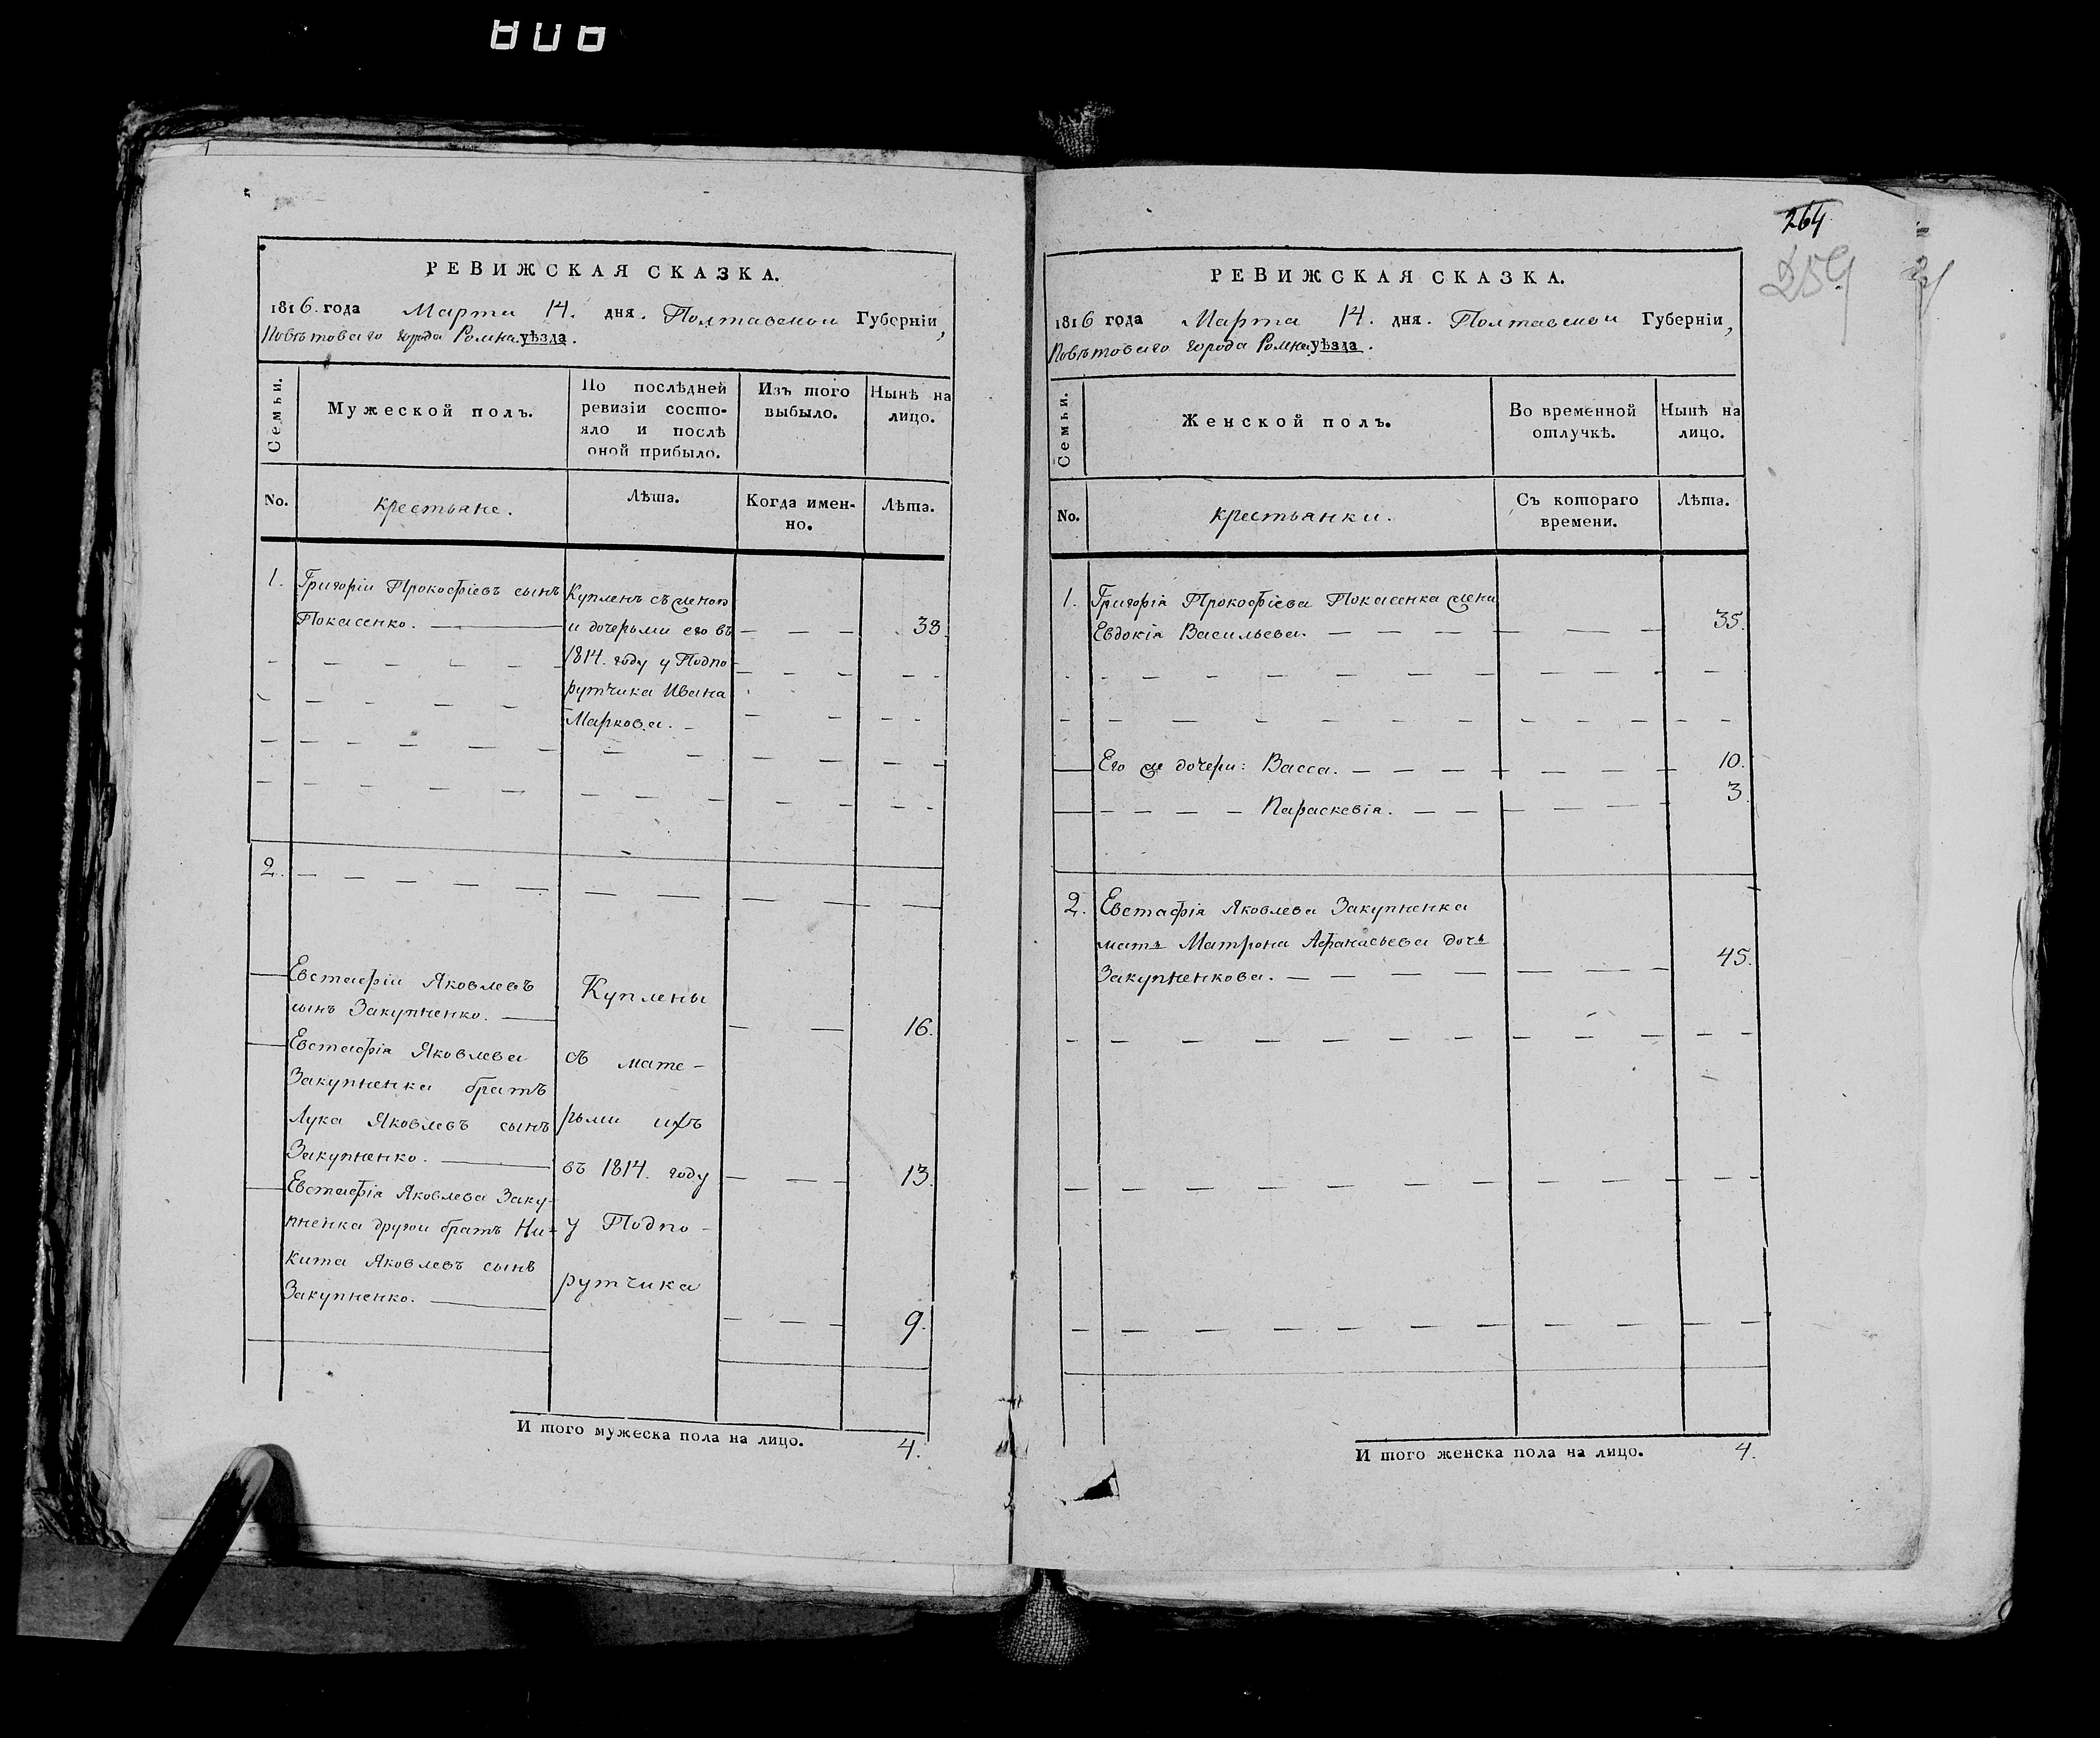 806
РЕВИЖСКАЯ СКАЗКА.
1816. года Марта 14. дня. Полтавской Губерніи,
Повѣтоваго города Ромна уѣзда.
Семьи.
Мужеской полъ.
По послѣдней
ревизіи состо-
яло и послѣ
оной прибыло.
Изъ того
выбыло.
Нынѣ на
лицо.
No.
крестьяне.
Лѣта.
Когда имен-
но.
Лѣта.
1. Григоріи Прокофіевъ сынъ
Покасенко.
Купленъ съ женою
и дочерьми его въ
1814. году у Подпо
рутчика Ивана
Маркова.
38.
2.
Евстафіи Яковлевъ
сынъ Закупненко.
16.
Евстафія Яковлева
Закупненка братъ
Лука Яковлевъ сынъ
Закупненко.
13.
Евстафія Яковлева Заку-
пненка другои братъ Ни-
кита Яковлевъ сынъ
Закупненко.
9.
Куплены
съ мате-
рьми ихъ
въ 1814. году
у Подпо-
рутчика
И того мужеска пола на лицо. 4.
264
259
РЕВИЖСКАЯ СКАЗКА.
1816 года Марта 14. дня. Полтавской Губерніи,
Повѣтоваго города Ромна уѣзда.
Семьи.
Женской полъ.
Во временной
отлучкѣ.
Нынѣ на
лицо.
No.
крестьянки.
Съ котораго
времени.
Лѣта.
1. Григорія Прокофіева Покасенка жена
Евдокія Васильева. 35.
Его же дочери: Васса. 10.
Параскевія. 3.
2. Евстафія Яковлева Закупненка
мать Матрона Афанасьева дочь
Закупненкова. 45.
И того женска пола на лицо. 4.